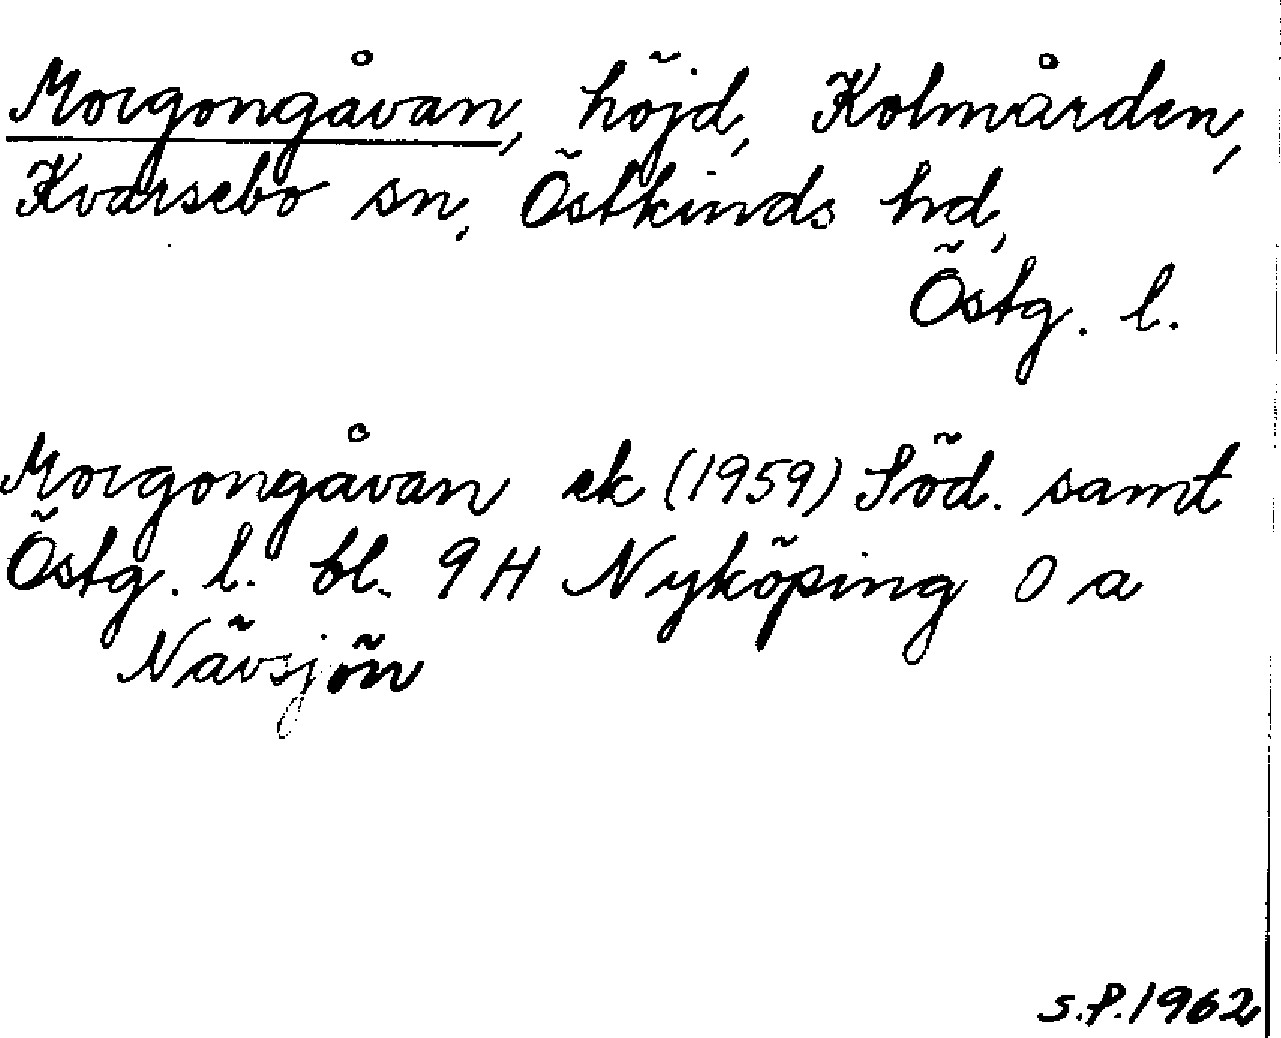 Morgongåvan, höjd, Kolmården,
Kvarsebo sn, Östkinds hd,
Östg. l.
Morgongåvan ek (1959) Söd. samt
Östg. l. bl. 9H Nyköping 0 a
Nävsjön
S.P. 1962